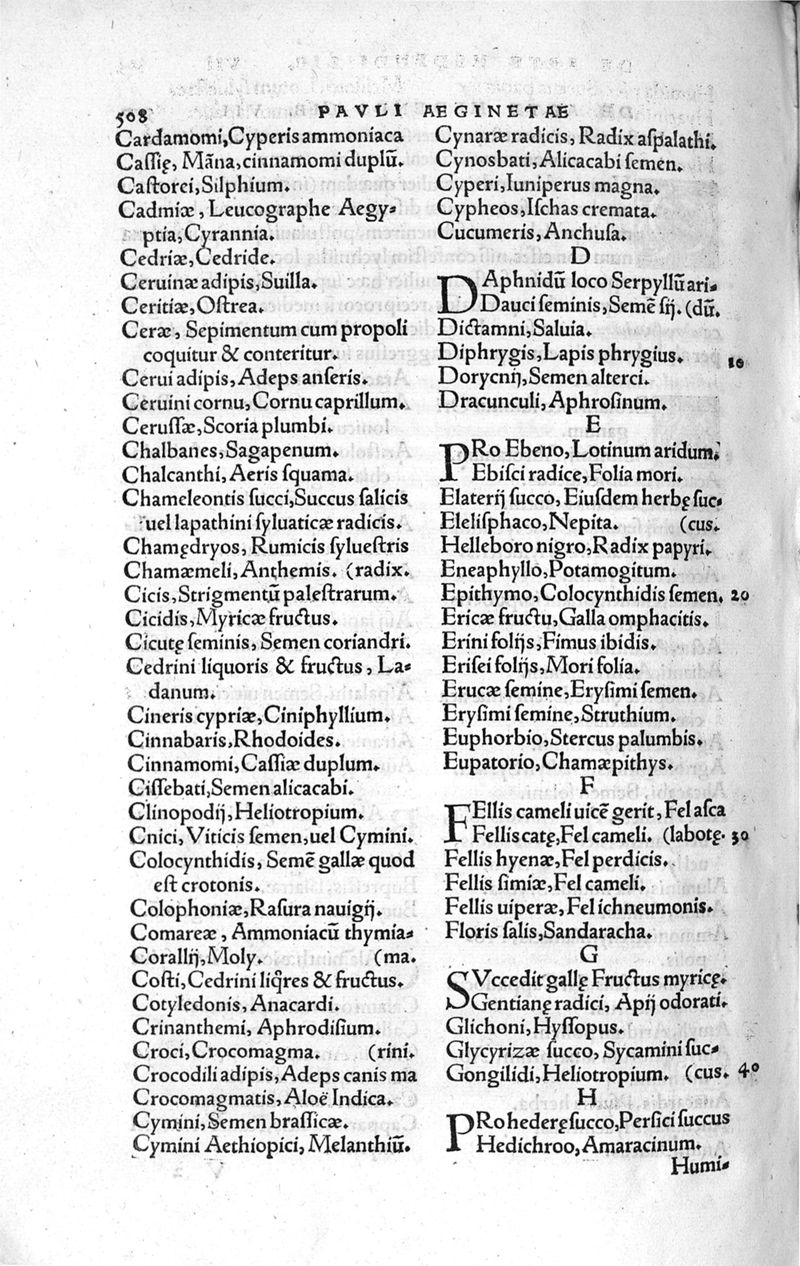 508
PAVLI AEGINETAE
Cardamomi,Cyperis ammoniaca
Caſſię, Mãna,cinnamomi duplũ.
Caſtorei,Silphium.
Cadmiæ, Leucographe Aegy-
ptia,Cyrannia.
Cedriæ,Cedride.
Ceruinæ adipis,Suilla.
Ceritiæ,Oſtrea.
Ceræ, Sepimentum cum propoli
coquitur & conteritur.
Cerui adipis,Adeps anſeris.
Ceruini cornu,Cornu caprillum.
Ceruſſæ,Scoria plumbi.
Chalbanes,Sagapenum.
Chalcanthi,Aeris ſquama.
Chameleontis ſucci,Succus ſalicis
uel lapathini ſyluaticæ radicis.
Chamędryos, Rumicis ſylueſtris
Chamæmeli,Anthemis. (radix.
Cicis,Strigmentũ paleſtrarum.
Cicidis,Myricæ fructus.
Cicutę ſeminis, Semen coriandri.
Cedrini liquoris & fructus, La-
danum.
Cineris cypriæ,Ciniphyllium.
Cinnabaris,Rhodoides.
Cinnamomi,Caſſiæ duplum.
Ciſſebati,Semen alicacabi.
Clinopodĳ,Heliotropium.
Cnici, Viticis ſemen,uel Cymini.
Colocynthidis, Semẽ gallæ quod
eſt crotonis.
Colophoniæ,Raſura nauigĳ.
Comareæ, Ammoniacũ thymia-
Corallĳ,Moly. (ma.
Coſti,Cedrini liq̃res & fructus.
Cotyledonis, Anacardi.
Crinanthemi, Aphrodiſium.
Croci,Crocomagma. (rini.
Crocodili adipis,Adeps canis ma
Crocomagmatis, Aloë Indica.
Cymini,Semen braſſicæ.
Cymini Aethiopici, Melanthiũ.
Cynaræ radicis, Radix aſpalathi.
Cynosbati,Alicacabi ſemen.
Cyperi,Iuniperus magna.
Cypheos,Iſchas cremata.
Cucumeris,Anchuſa.
D
DAphnidũ loco Serpyllũ ari-
Dauci ſeminis,Semẽ ſĳ. (dũ.
Dictamni,Saluia.
Diphrygis,Lapis phrygius. 10
Dorycnĳ,Semen alterci.
Dracunculi, Aphroſinum.
E
PRo Ebeno, Lotinum aridum.
Ebiſci radice,Folia mori.
Elaterĳ ſucco, Eiuſdem herbę ſuc-
Eleliſphaco,Nepita. (cus.
Helleboro nigro,Radix papyri.
Eneaphyllo,Potamogitum.
Epithymo,Colocynthidis ſemen. 20
Ericæ fructu,Galla omphacitis.
Erini folĳs,Fimus ibidis.
Eriſei folĳs,Mori folia.
Erucæ ſemine,Eryſimi ſemen.
Eryſimi ſemine,Struthium.
Euphorbio,Stercus palumbis.
Eupatorio,Chamæpithys.
F
FEllis cameli uicẽ gerit,Fel aſca
Fellis catę,Fel cameli. (labotę. 30
Fellis hyenæ,Fel perdicis.
Fellis ſimiæ,Fel cameli.
Fellis uiperæ,Fel ichneumonis.
Floris ſalis,Sandaracha.
G
SVccedit gallę Fructus myricę.
Gentianę radici, Apĳ odorati.
Glichoni,Hyſſopus.
Glycyrizæ ſucco, Sycamini ſuc-
Gongilidi,Heliotropium. (cus. 40
H
PRo hederę ſucco,Perſici ſuccus
Hedichroo,Amaracinum.
Humi-